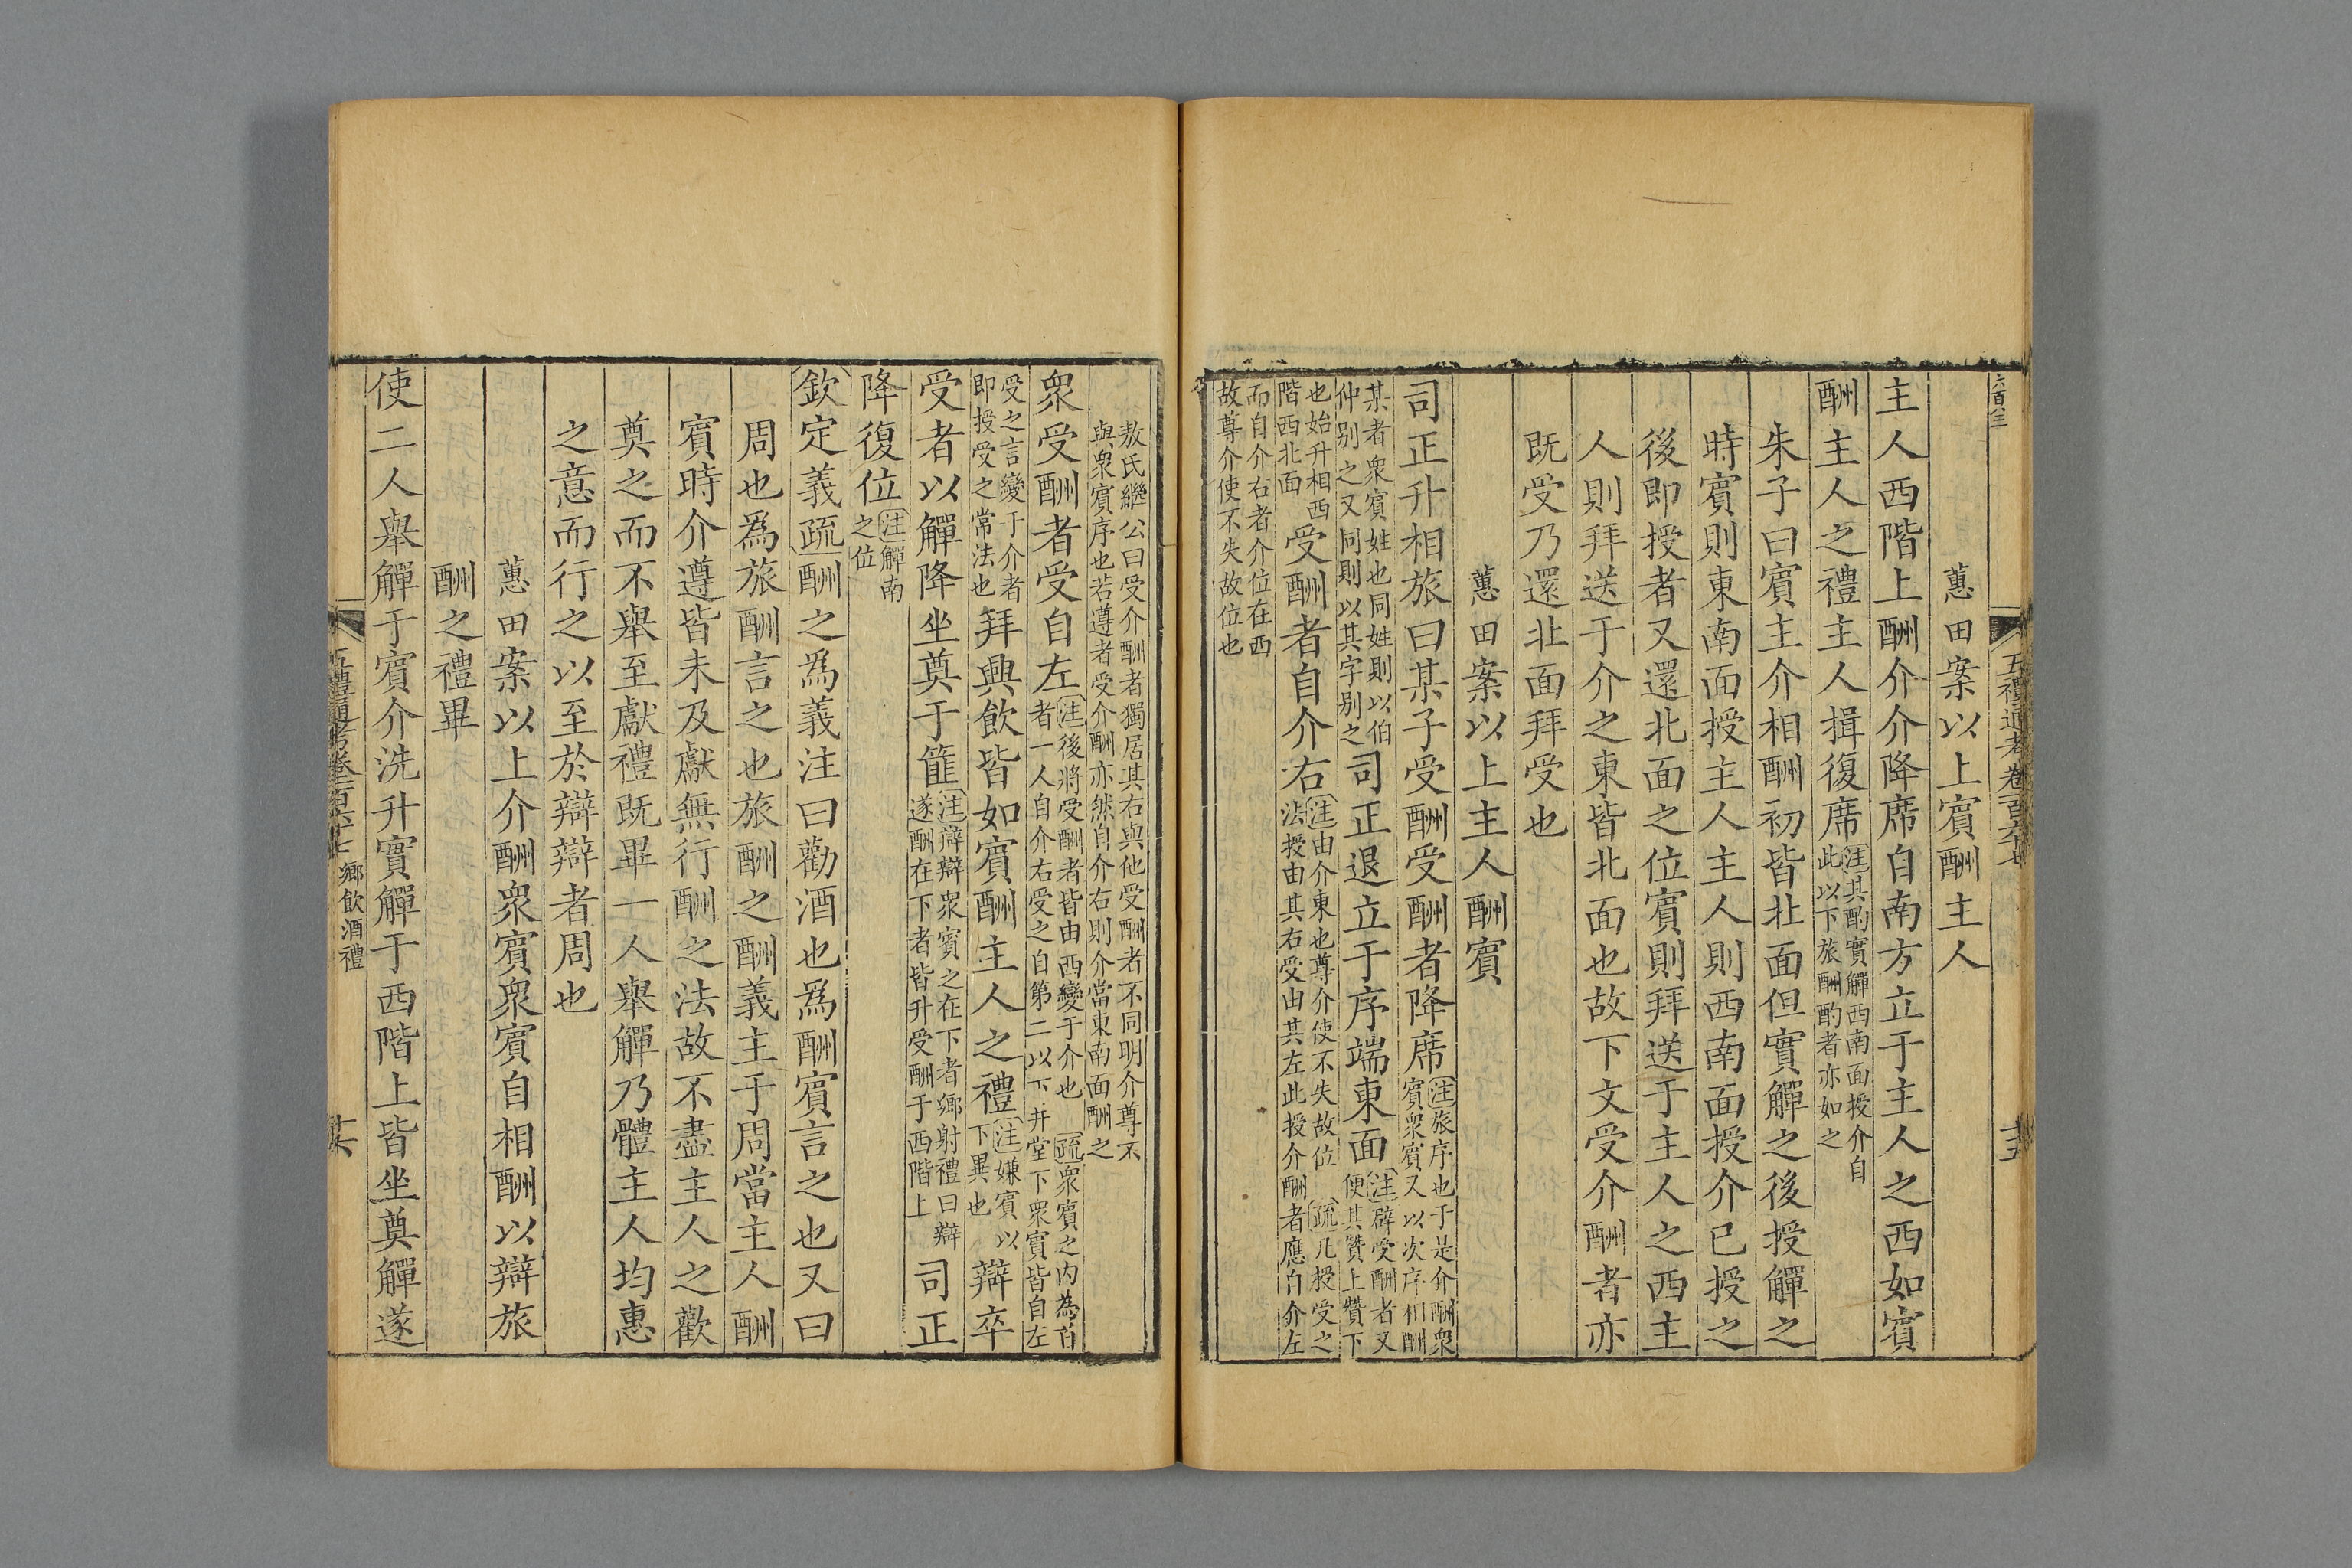 六百八三
五禮通考卷一百六十七
十五
蕙田案以上賓酬主人
主人西階上酬介介降席自南方立于主人之西如賓
酬主人之禮主人揖復席
注其酌實觶西南面授介自
此以下旅酬酌者亦如之
朱子曰賓主介相酬初皆北面但實觶之後授觶之
時賓則東南面授主人主人則西南面授介已授之
後即授者又還北面之位賓則拜送于主人之西主
人則拜送于介之東皆北面也故下文受介酬者亦
既受乃還北面拜受也
蕙田案以上主人酬賓
司正升相旅曰某子受酬受酬者降席
注旅序也于是介酬衆
賓衆賓又以次序相酬
某者衆賓姓也同姓則以伯
仲别之又同則以其字别之
司正退立于序端東面
注辟受酬者又
便其贊上贊下
也始升相西
階西北面
受酬者自介右
注由介東也尊介使不失故位
疏凡授受之
法授由其右受由其左此授介酬者應自介左
而自介右者介位在西
故尊介使不失故位也
敖氏繼公曰受介酬者獨居其右與他受酬者不同明介尊不
與衆賓序也若遵者受介酬亦然自介右則介當東南面酬之
衆受酬者受自左
注後將受酬者皆由西變于介也
疏衆賓之内為首
者一人自介右受之自第二以下并堂下衆賓皆自左
受之言變于介者
即授受之常法也
拜興飲皆如賓酬主人之禮
注嫌賓以
下異也
辯卒
受者以觶降坐奠于篚
注辯辯衆賓之在下者鄉射禮曰辯
遂酬在下者皆升受酬于西階上
司正
降復位
注觶南
之位
欽定義疏酬之爲義注曰勸酒也爲酬賓言之也又曰
周也爲旅酬言之也旅酬之酬義主于周當主人酬
賓時介遵皆未及獻無行酬之法故不盡主人之歡
奠之而不舉至獻禮既畢一人舉觶乃體主人均惠
之意而行之以至於辯辯者周也
蕙田案以上介酬衆賓衆賓自相酬以辯旅
酬之禮畢
使二人舉觶于賓介洗升實觶于西階上皆坐奠觶遂
五禮通考卷一百六十七
鄉飲酒禮
十六